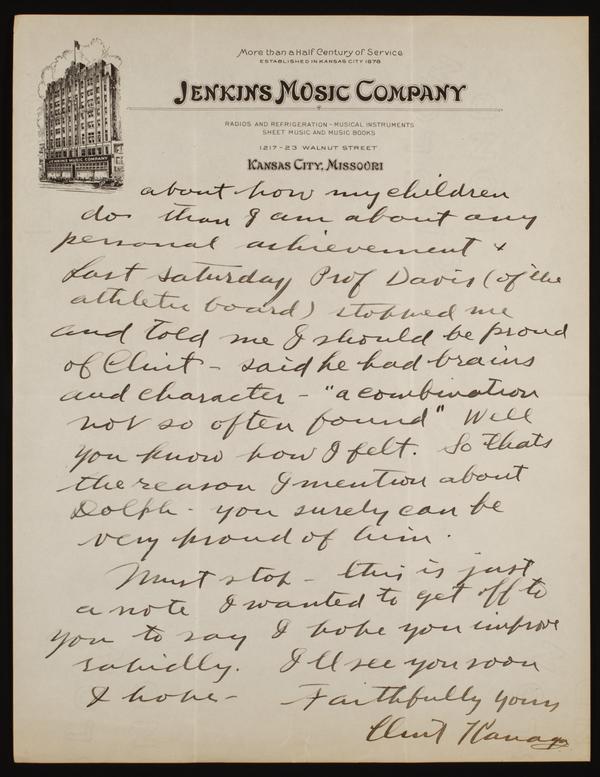 More than a Half Century of Service
ESTABLISHED IN KANSAS CITY 1878
JENKINS MUSIC COMPANY
RADIOS AND REFRIGERATION - MUSICAL INSTRUMENTS
SHEET MUSIC AND MUSIC BOOKS
1217-23 WALNUT STREET
KANSAS CITY, MISSOURI
JENKINS MUSIC COMPANY
about how my children
do than I am about any
personal achievement &
Last Saturday Prof Davis (of the
athletic board) stopped me
and told me I should be proud
of Clint - said he had brains
and character - "a combination
not so often found" Well
you know how I felt. So thats
the reason I mention about
Dolph - you surely can be
very proud of him.
Must stop - this is just
a note I wanted to get off to
you to say I hope you improve
rapidly. I'll see you soon
I hope - Faithfully yours
Clint Kanaga